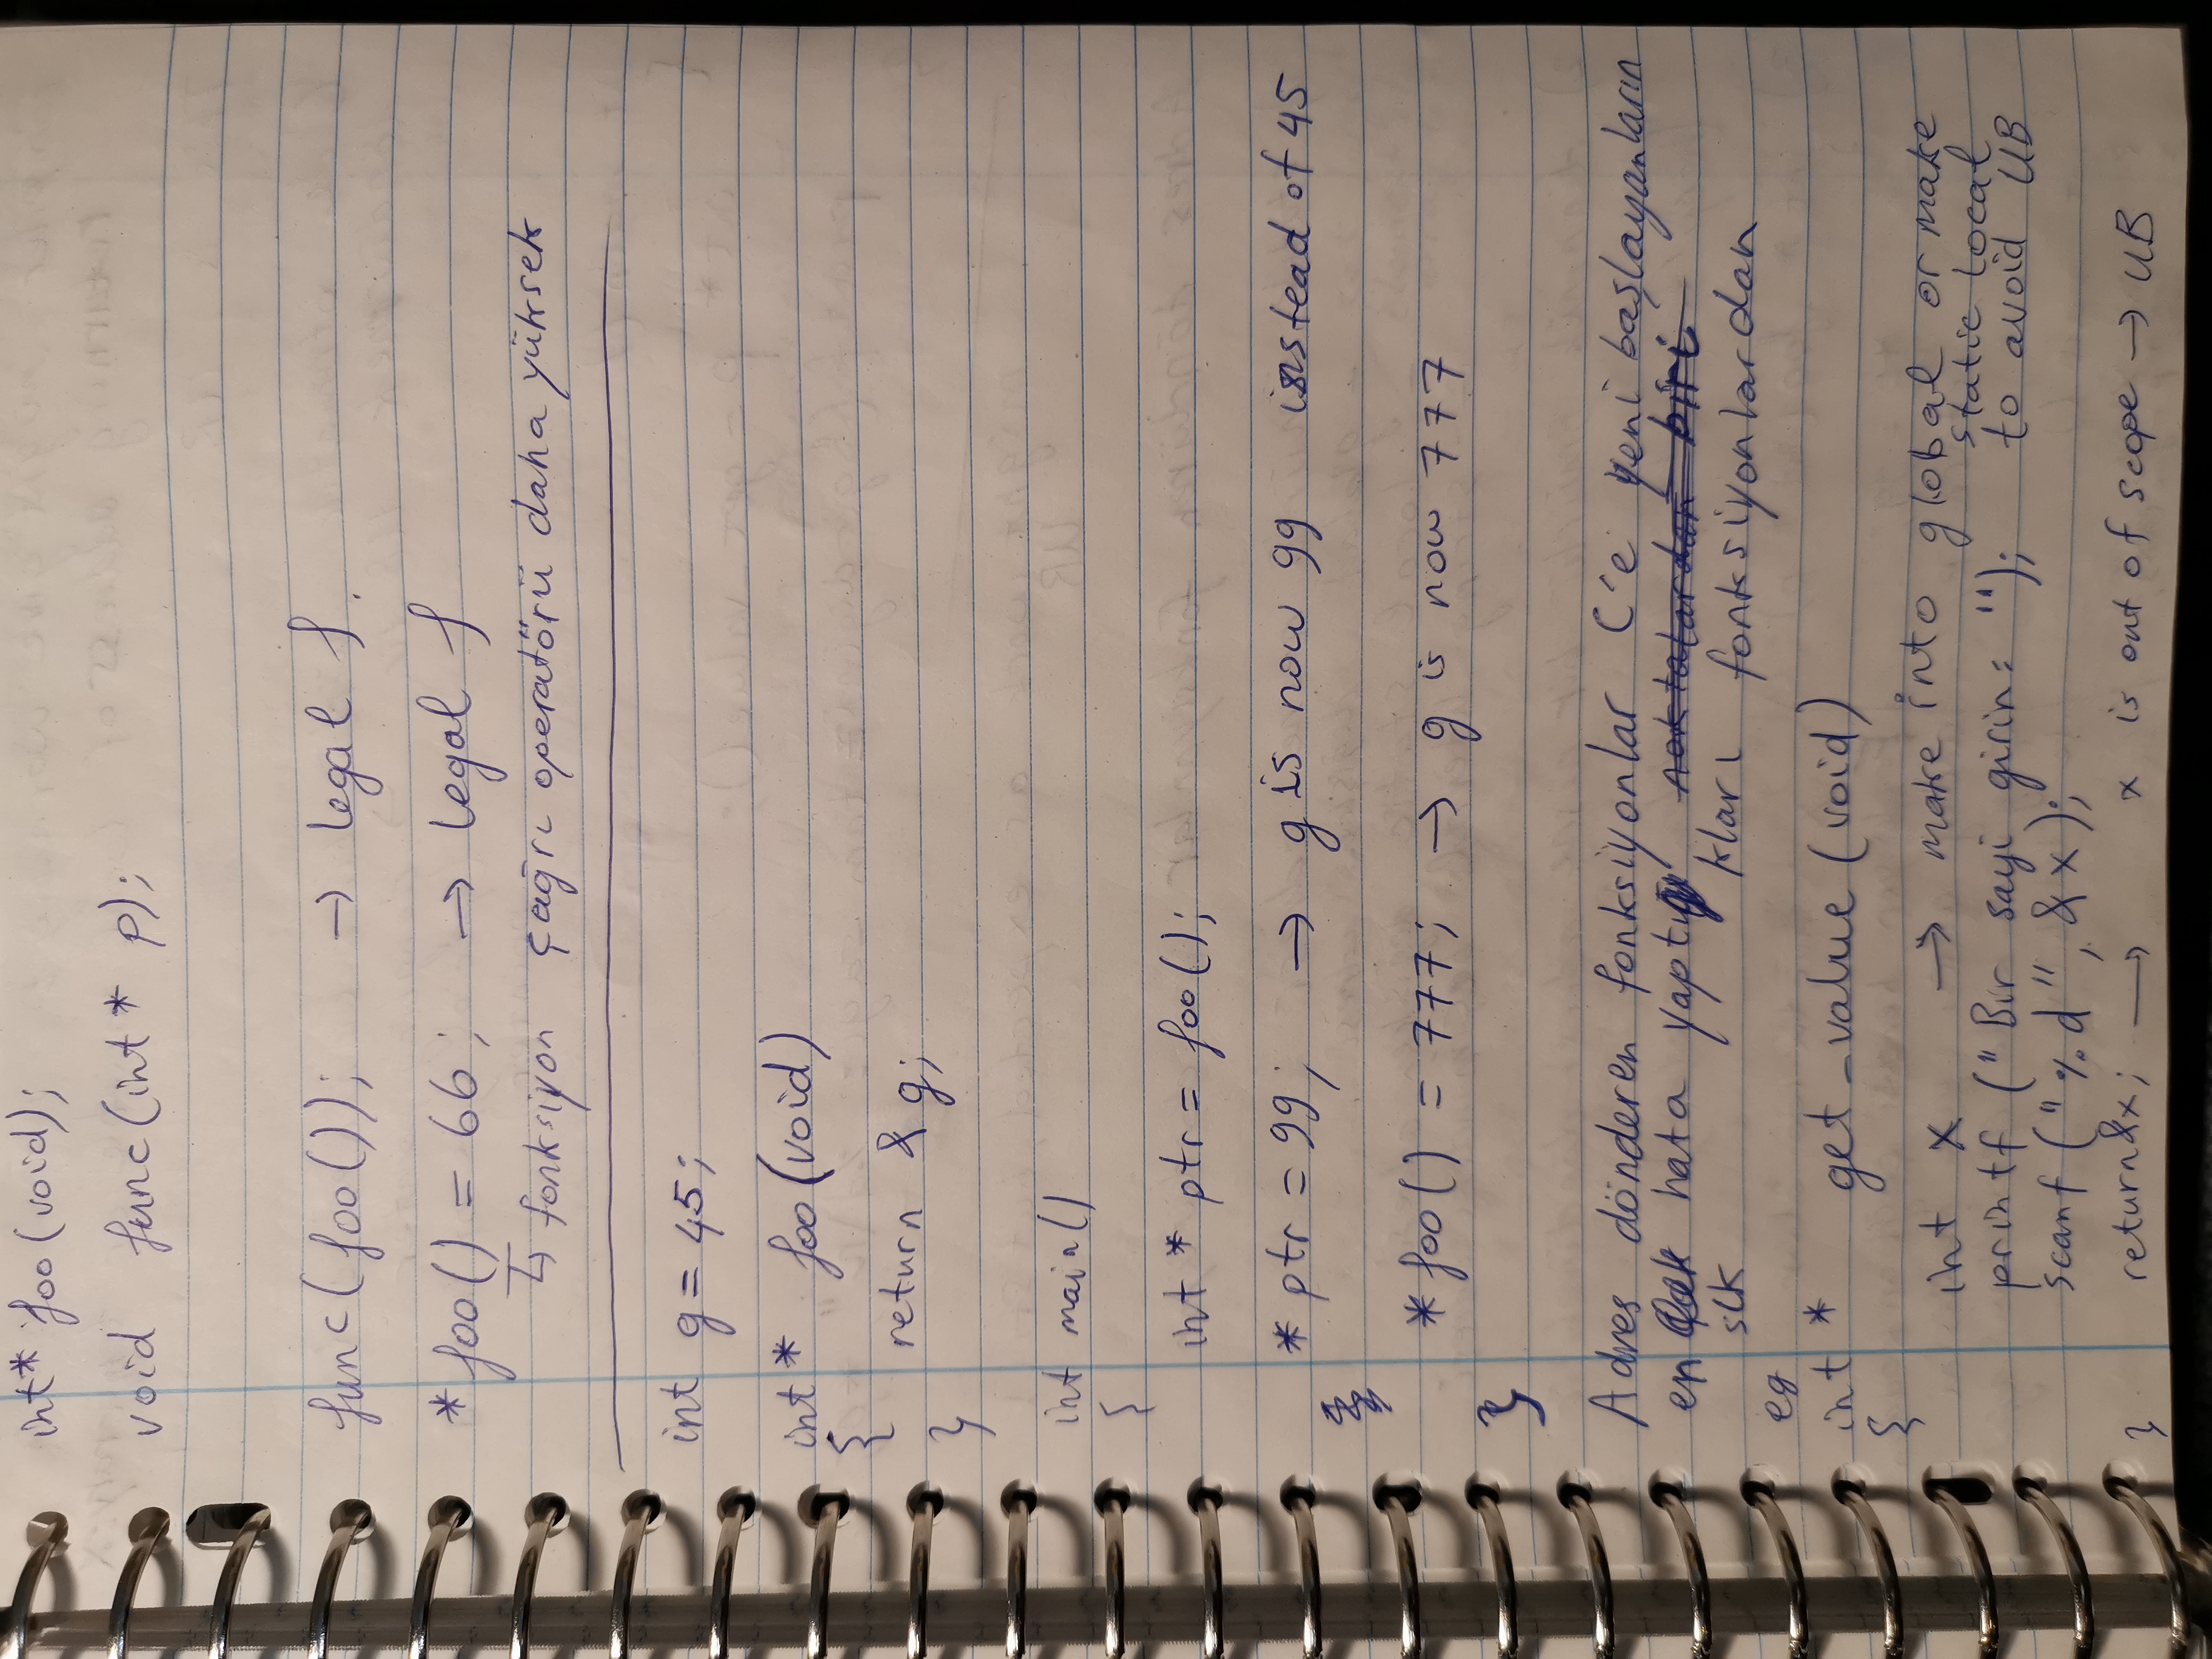 int* foo(void);
void func(int* p);
func(foo()); → legal f.
*foo() = 66; → legal f
↳ fonksiyon çağrı operatörü daha yüksek
int g = 45;
int* foo(void)
{
return &g;
}
int main()
{
int * ptr = foo();
* ptr = 99; → g is now 99 instead of 45
*foo() = 777; → g is now 777
}
Adres dönderen fonksiyonlar C'e yeni başlayanların
en hata yaptı noktalardan biri
sık kları fonksiyonlardan
eg
int * get_value(void)
{
int x → make into global or make
static local
printf("Bir sayi girin: "); to avoid UB
scanf("%d", &x);
return &x; → x is out of scope → UB
}